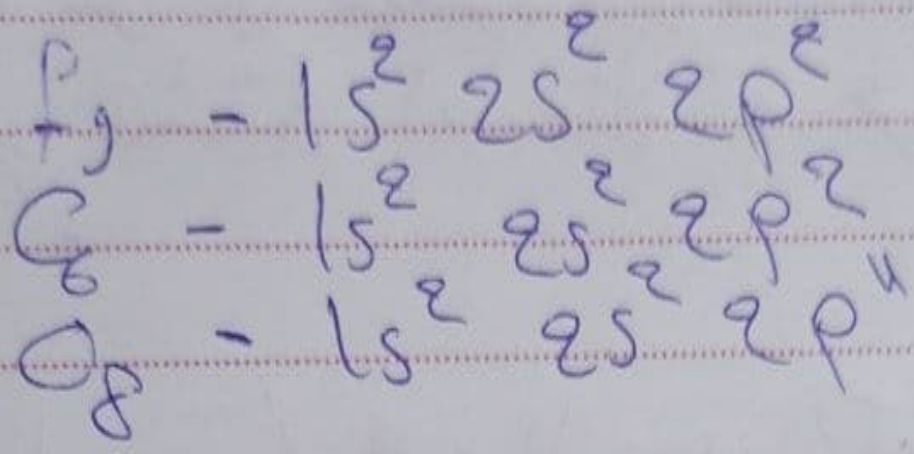 f₉ - 1s² 2s² 2p²
C₆ - 1s² 2s² 2p²
O₈ - 1s² 2s² 2p⁴